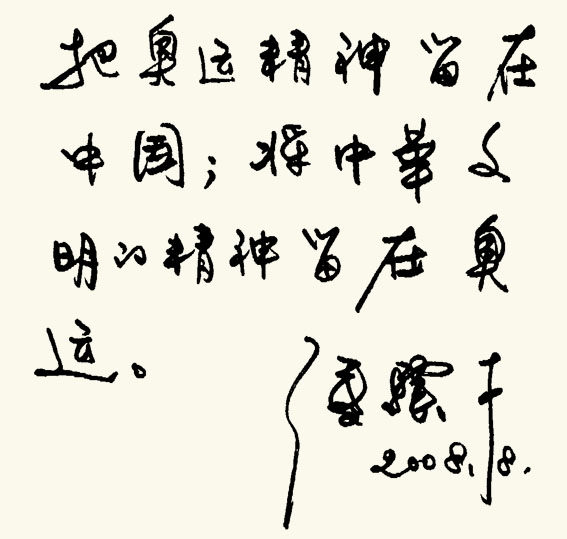 把奥运精神留在
中国；将中华文
明的精神留在奥
运。
2008.8.